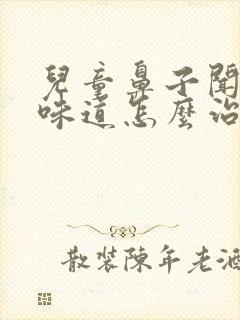 兒童鼻子聞
味道怎麼治
散裝陳年老酒